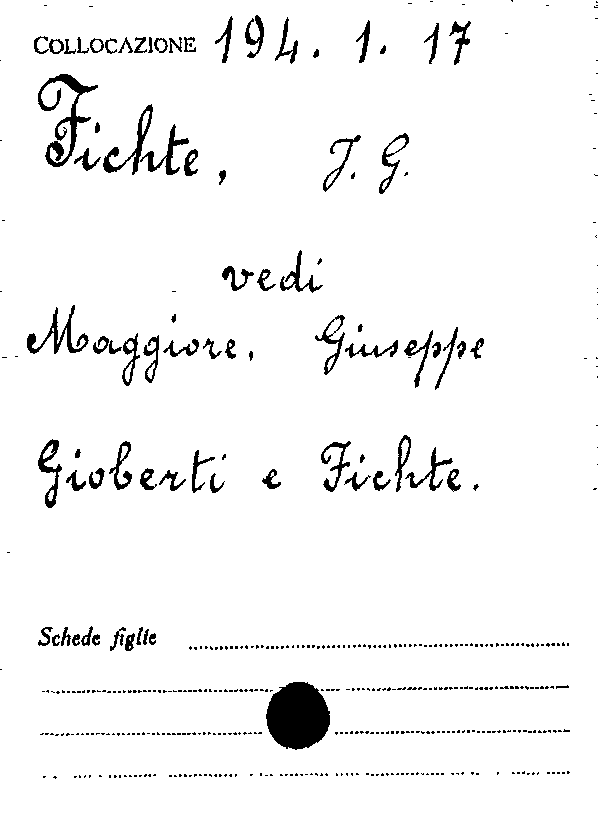 COLLOCAZIONE 194. 1. 17
Fichte, J. G.
vedi
Maggiore, Giuseppe
Gioberti e Fichte.
Schede figlie